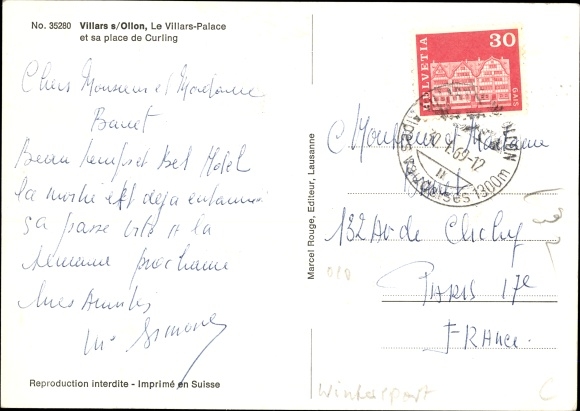 No. 35280 Villars s/Ollon, Le Villars-Palace
et sa place de Curling
Chers Monsieur et Madame
Banet
Beau temps et bel Hotel
la moitié est deja entamée
ça passe vite et la
semaine prochaine
Mes Amitiés
Simone
Reproduction interdite - Imprimé en Suisse
Marcel Rouge, Editeur, Lausanne
HELVETIA
30
GAIS
69-12
1300m
Monsieur et Madame
132 Av de Clichy
PARIS 17e
FRANCE.
Wintersport